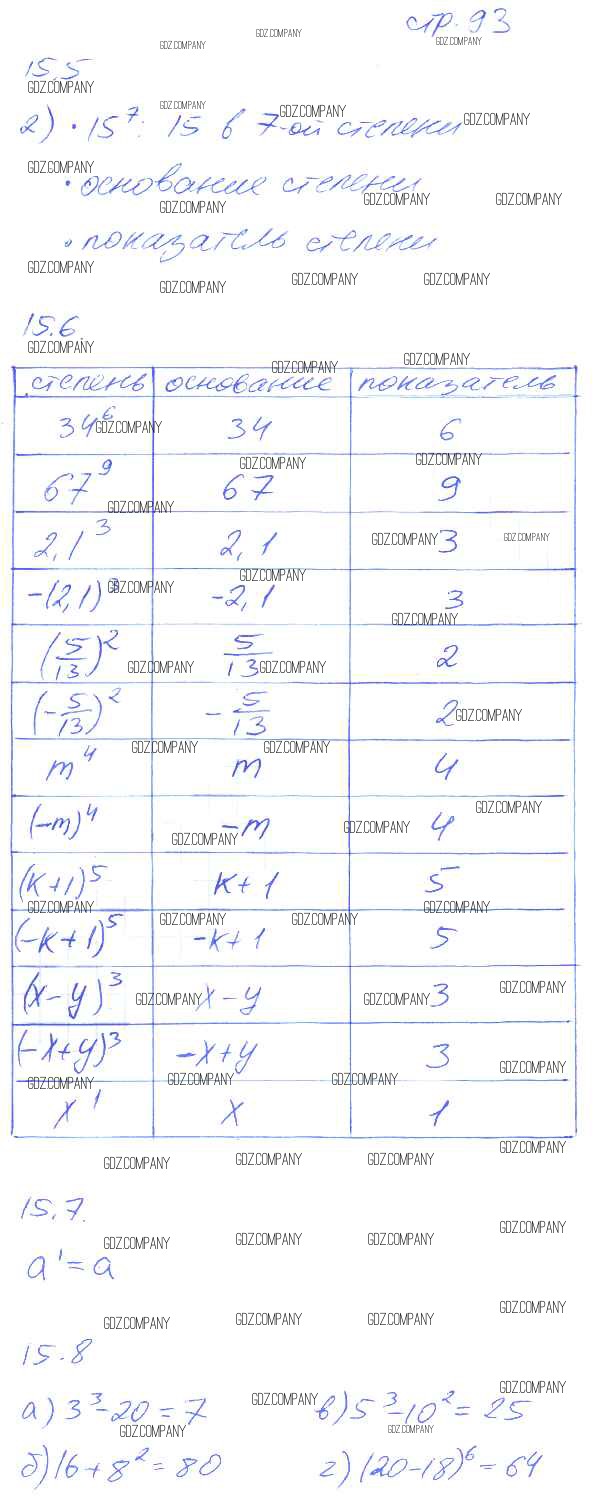 стр. 93
15.5
2) • 15⁷: 15 в 7-ой степени
• основание степени
• показатель степени
15.6
степень основание показатель
34⁶ 34 6
67⁹ 67 9
2,1³ 2,1 3
-(2,1)³ -2,1 3
(5/13)² 5/13 2
(-5/13)² -5/13 2
m⁴ m 4
(-m)⁴ -m 4
(k+1)⁵ k+1 5
(-k+1)⁵ -k+1 5
(x-y)³ x-y 3
(-x+y)³ -x+y 3
x¹ x 1
15.7.
a¹=a
15.8
а) 3³-20=7 в) 5³-10²=25
б) 16+8²=80 г) (20-18)⁶=64
GDZ.COMPANY